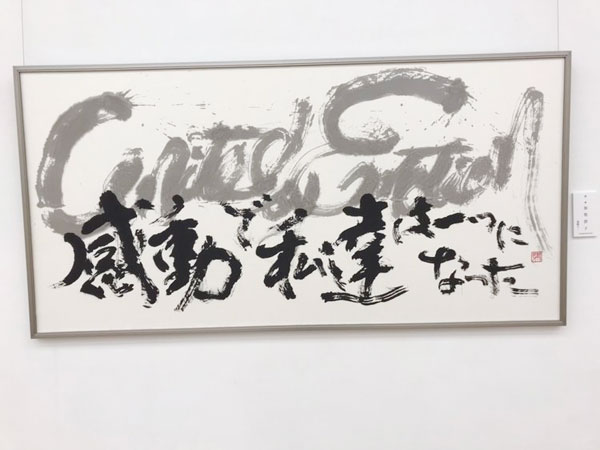 United by Emotion
感動で私達は一つに
なった